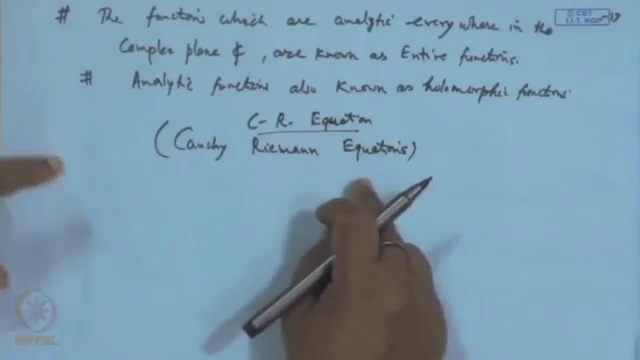 # The functions which are analytic every where in the
Complex plane ₵, are known as Entire functions.
# Analytic functions also known as holomorphic functions.
C-R. Equation
(Cauchy Riemann Equations)
© CET
I.I.T. KGP
NPTEL